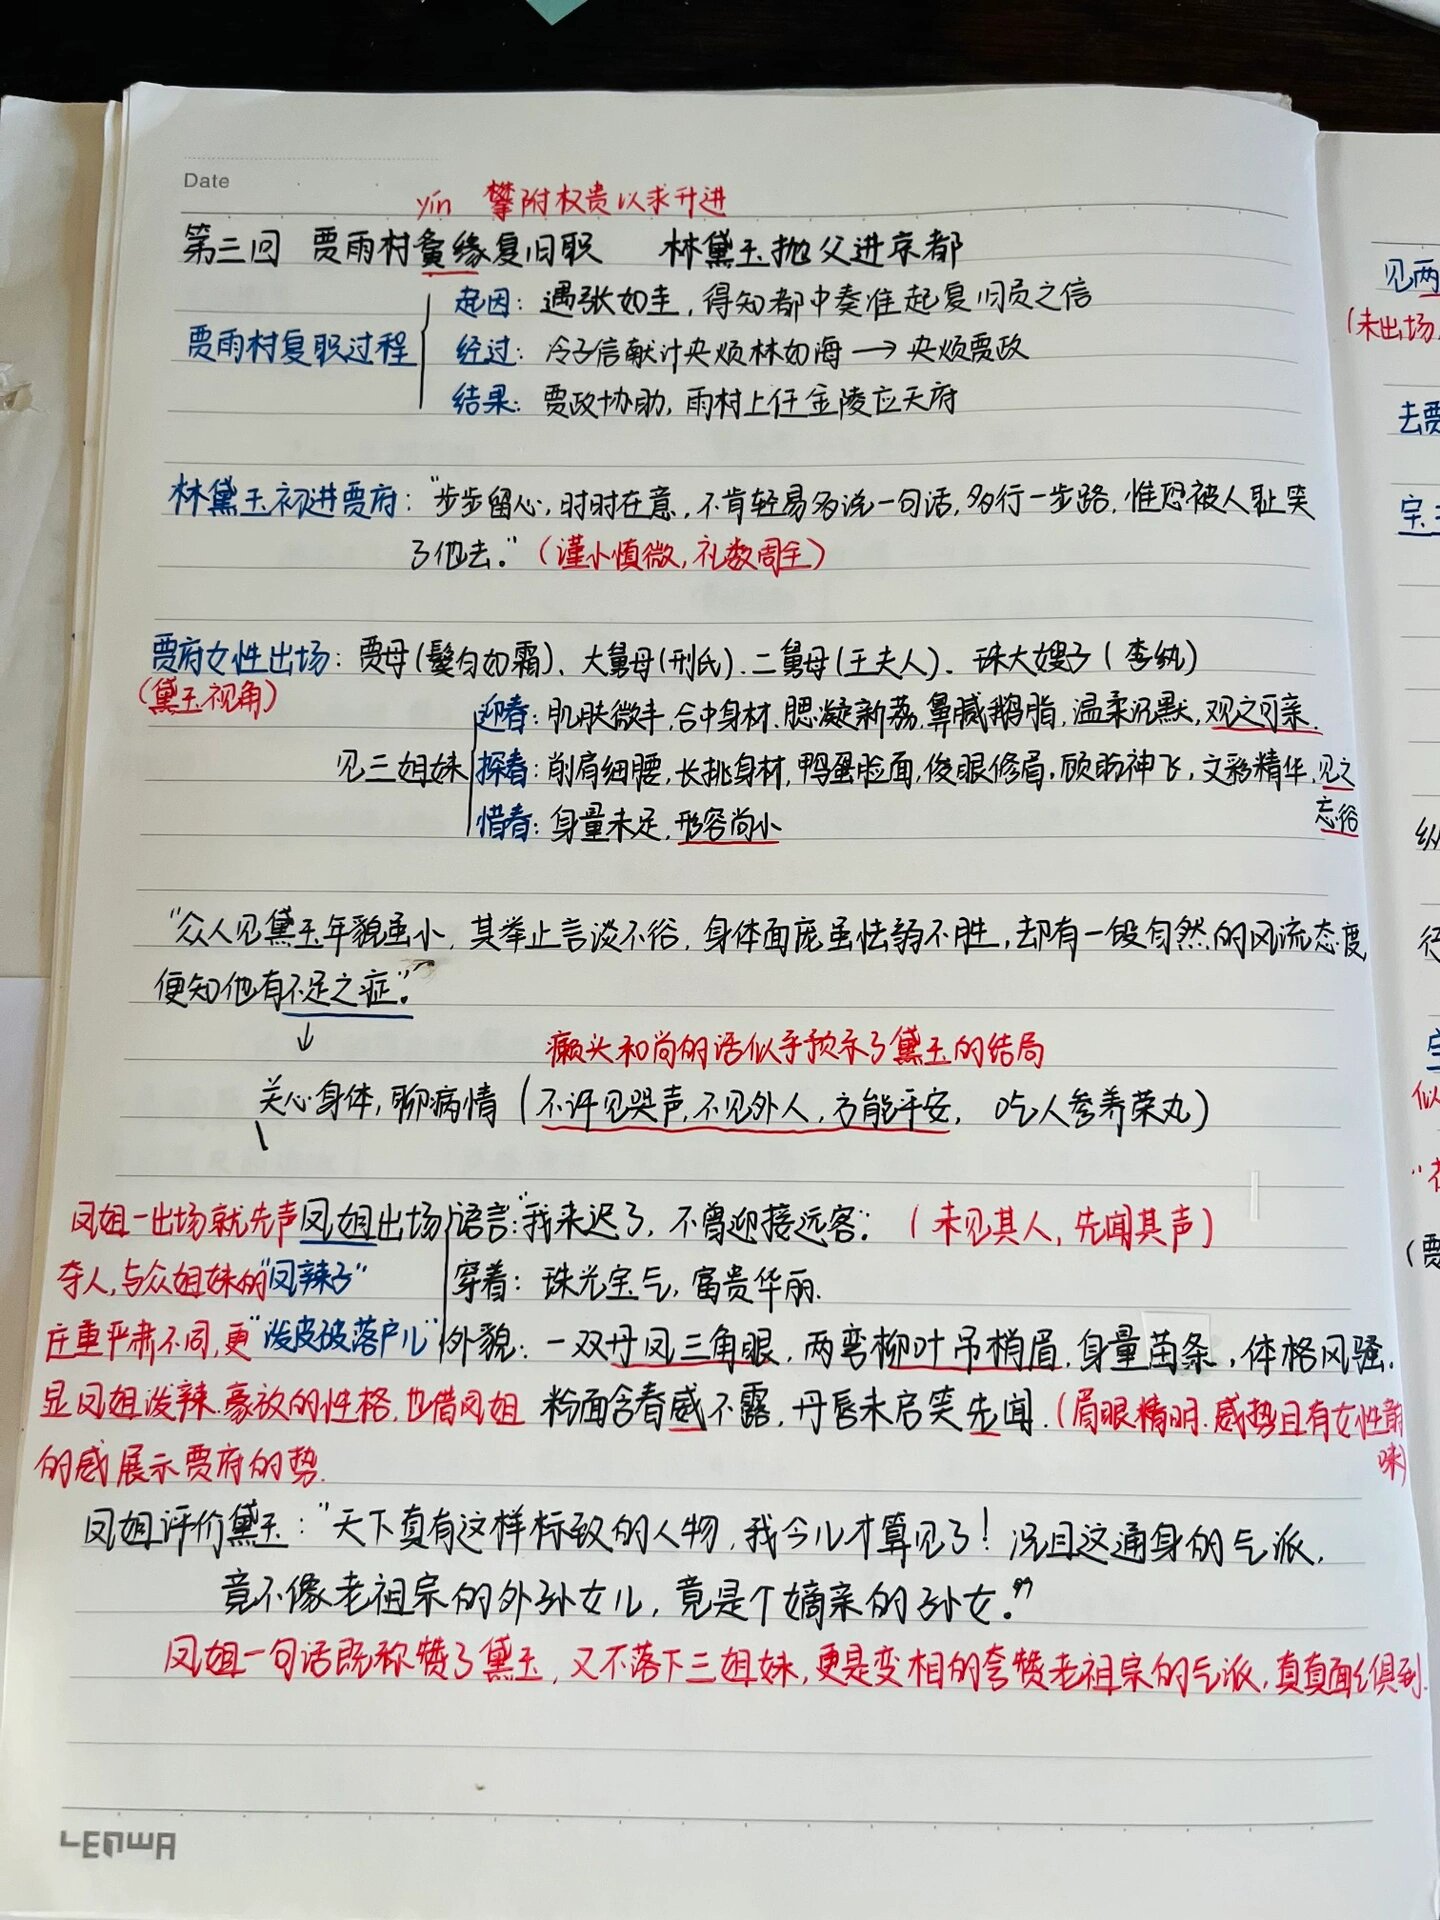 Date
yín 攀附权贵以求升进
第三回 贾雨村夤缘复旧职 林黛玉抛父进京都
起因：遇张如圭，得知都中奏准起复旧员之信
贾雨村复职过程
经过：冷子信献计央烦林如海→央烦贾政
结果：贾政协助，雨村上任金陵应天府
林黛玉初进贾府："步步留心，时时在意，不肯轻易多说一句话，多行一步路，惟恐被人耻笑
了他去。"（谨小慎微，礼数周全）
贾府女性出场：贾母（鬓匀如霜）、大舅母（刑氏）、二舅母（王夫人）、珠大嫂子（李纨）
（黛玉视角）
迎春：肌肤微丰，合中身材，腮凝新荔，鼻腻鹅脂，温柔沉默，观之可亲.
见三姐妹 探春：削肩细腰，长挑身材，鸭蛋脸面，俊眼修眉，顾盼神飞，文彩精华，见之
忘俗
惜春：身量未足，形容尚小
"众人见黛玉年貌虽小，其举止言谈不俗，身体面庞虽怯弱不胜，却有一段自然的风流态度
便知他有不足之症。"
↓
癞头和尚的话似乎预示了黛玉的结局
关心身体，聊病情（不许见哭声，不见外人，方能平安， 吃人参养荣丸）
凤姐一出场就先声 凤姐出场 语言："我来迟了，不曾迎接远客"。（未见其人，先闻其声）
夺人，与众姐妹的 "凤辣子" 穿着：珠光宝气，富贵华丽.
庄重严肃不同，更 "泼皮破落户儿" 外貌：一双丹凤三角眼，两弯柳叶吊梢眉，身量苗条，体格风骚，
显凤姐泼辣、豪放的性格，也借凤姐 粉面含春威不露，丹唇未启笑先闻.（眉眼精明、威势且有女性韵
味）
的威展示贾府的势.
凤姐评价黛玉："天下真有这样标致的人物，我今儿才算见了！况且这通身的气派，
竟不像老祖宗的外孙女儿，竟是个嫡亲的孙女。"
凤姐一句话既称赞了黛玉，又不落下三姐妹，更是变相的夸赞老祖宗的气派，真真面面俱到.
LENWA
见两
（未出场
去贾
行
似
（贾